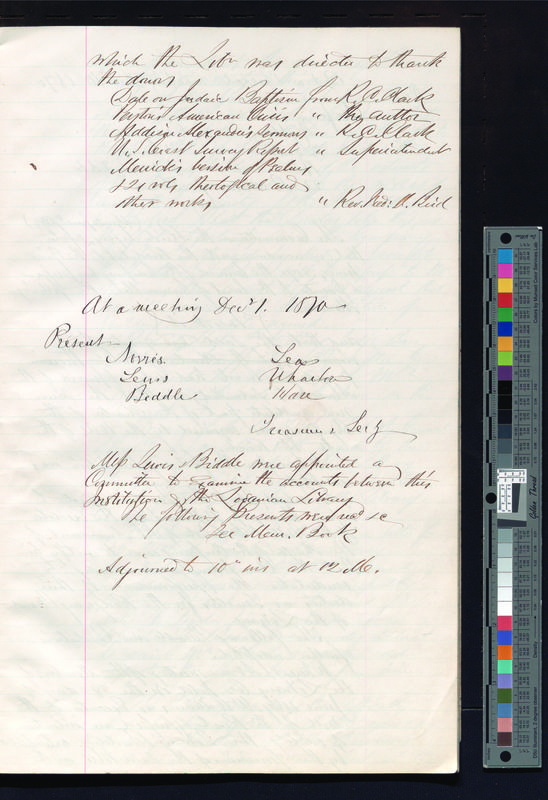 which the Libn was directed to thank
the donors
Dale on Judaic Baptism from R. C. Clark
American Crisis " the author
Addison Alexander's Sermons " R. C. Clark
U.S. Coast Survey Report " Superintendent
Merrick's version of Psalms
& 21 vols theological and
other works " Rev. Fred: M. Bird
At a meeting Decr 1. 1870
Present
Norris Lea
Lewis Wharton
Biddle Hare
Treasurer & Secy
Mess Lewis & Biddle were appointed a
Committee to examine the accounts between this
Institution & the Loganian Library
The following Presents were recd &c
See Mem. Book
Adjourned to 10" ins at 12 M.